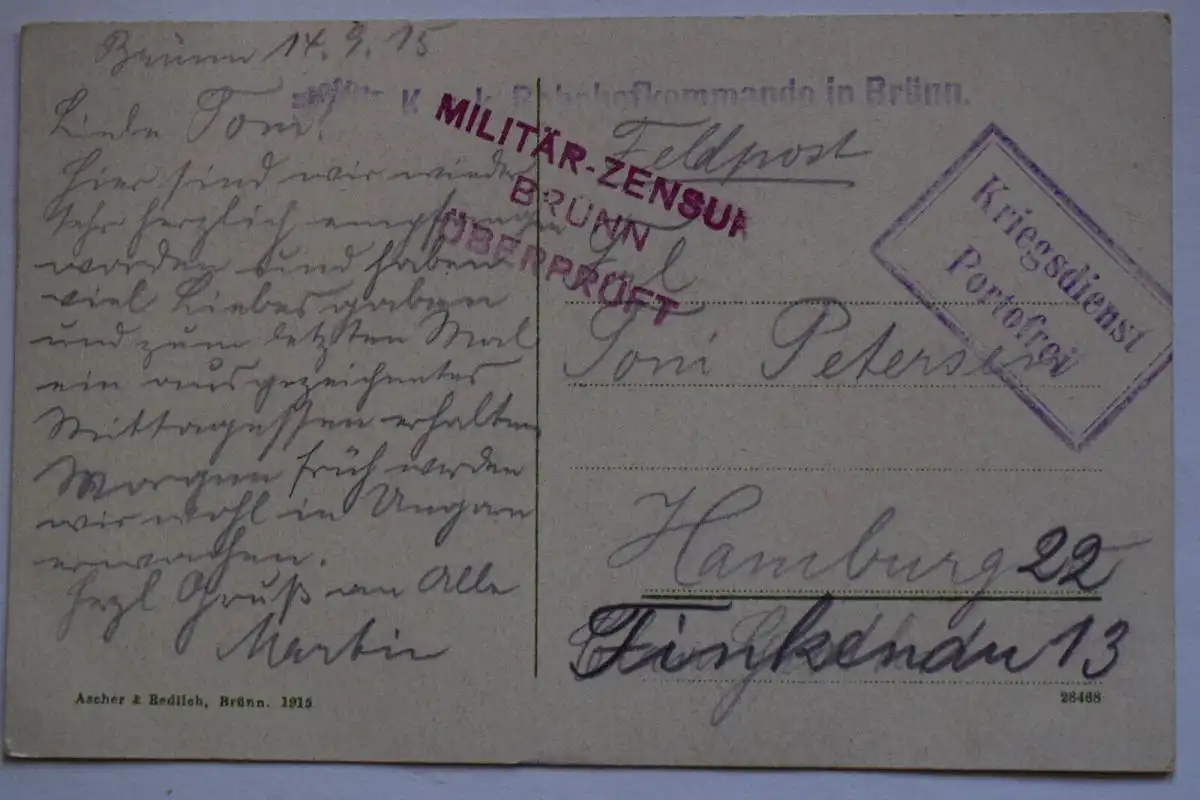 Brünn 14.9.15
Liebe Toni!
Hier sind wir wieder
sehr herzlich empfangen
worden und haben
viel Liebesgaben
und zum letzten Mal
ein ausgezeichnetes
Mittagessen erhalten
Morgen früh werden
wir wohl in Ungarn
erwachen.
Herzl Gruß an Alle
Martin
Ascher & Redlich, Brünn. 1915
Bahnhofkommando in Brünn.
MILITÄR-ZENSUR
BRÜNN
ÜBERPRÜFT
Feldpost
Kriegsdienst
Portofrei
Frl
Toni Petersen
Hamburg 22
Finkenau 13
28468